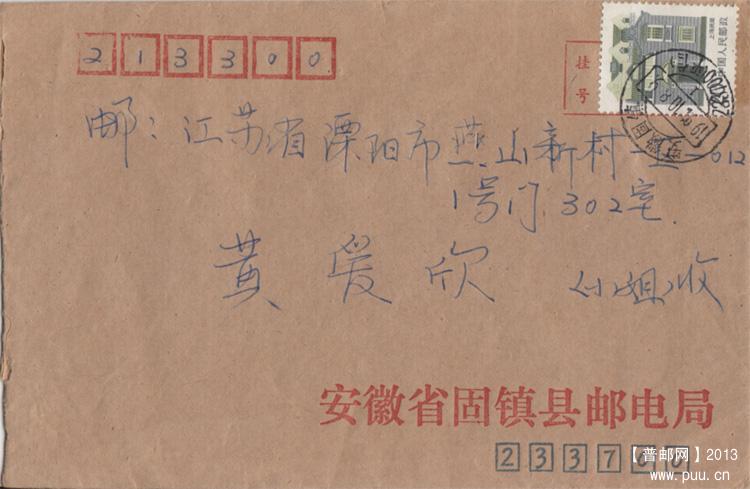 213300
挂号
上海民居
中国人民邮政
邮：江苏省溧阳市燕山新村一五一012
1号门302室
黄爱欣 小姐收
安徽省固镇县邮电局
233700
【普邮网】2013
www.puu.cn